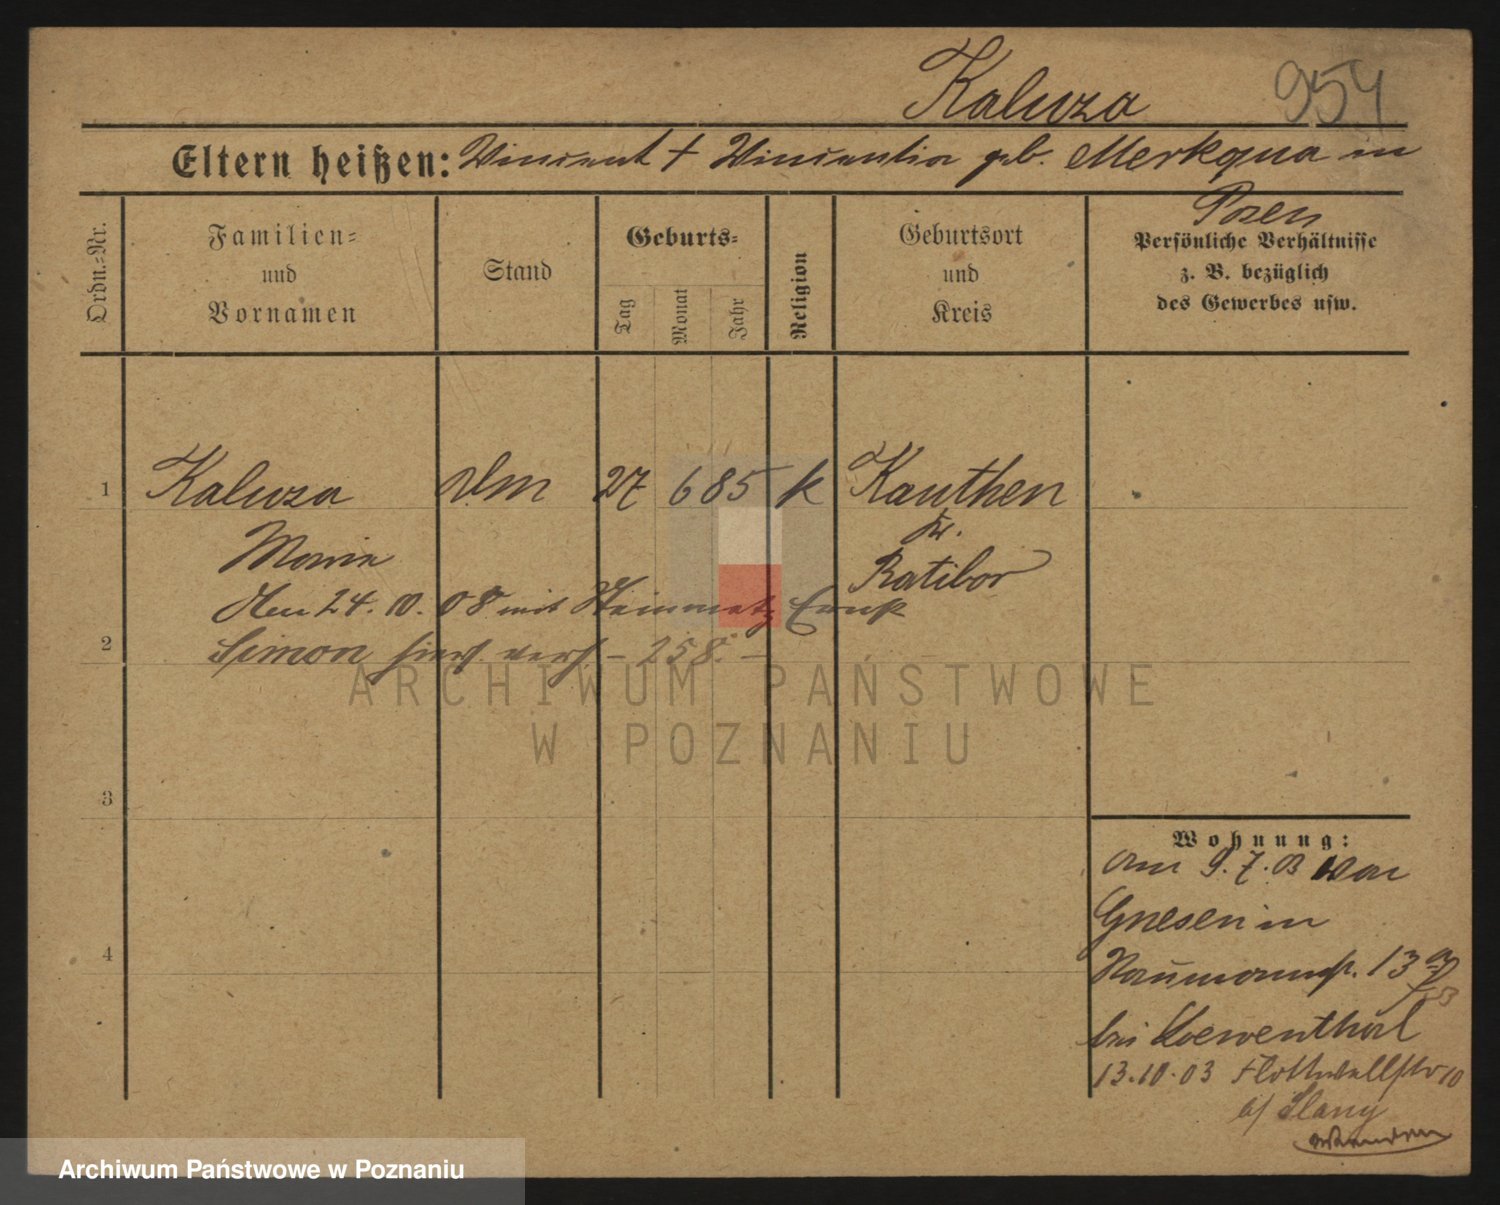 Kaluza 954
Eltern heißen: Vincent † Vincentia geb. Merkqua in
Posen
Ordn.-Nr.
Familien-
und
Vornamen
Stand
Geburts-
Tag
Monat
Jahr
Religion
Geburtsort
und
Kreis
Persönliche Verhältnisse
z. B. bezüglich
des Gewerbes usw.
1 Kaluza 27 6 85 k Kauthen
Kr.
Marie Ratibor
Den 24. 10. 08 mit Steinmetz Ernst
2 Simon verh. – 258. –
3
4
Wohnung:
am 9.7.03 von
Gnesen in
Naumannstr. 13
bei Loewenthal
13.10.03 Flottwellstr 10
b/ Slany
ARCHIWUM PAŃSTWOWE
W POZNANIU
Archiwum Państwowe w Poznaniu